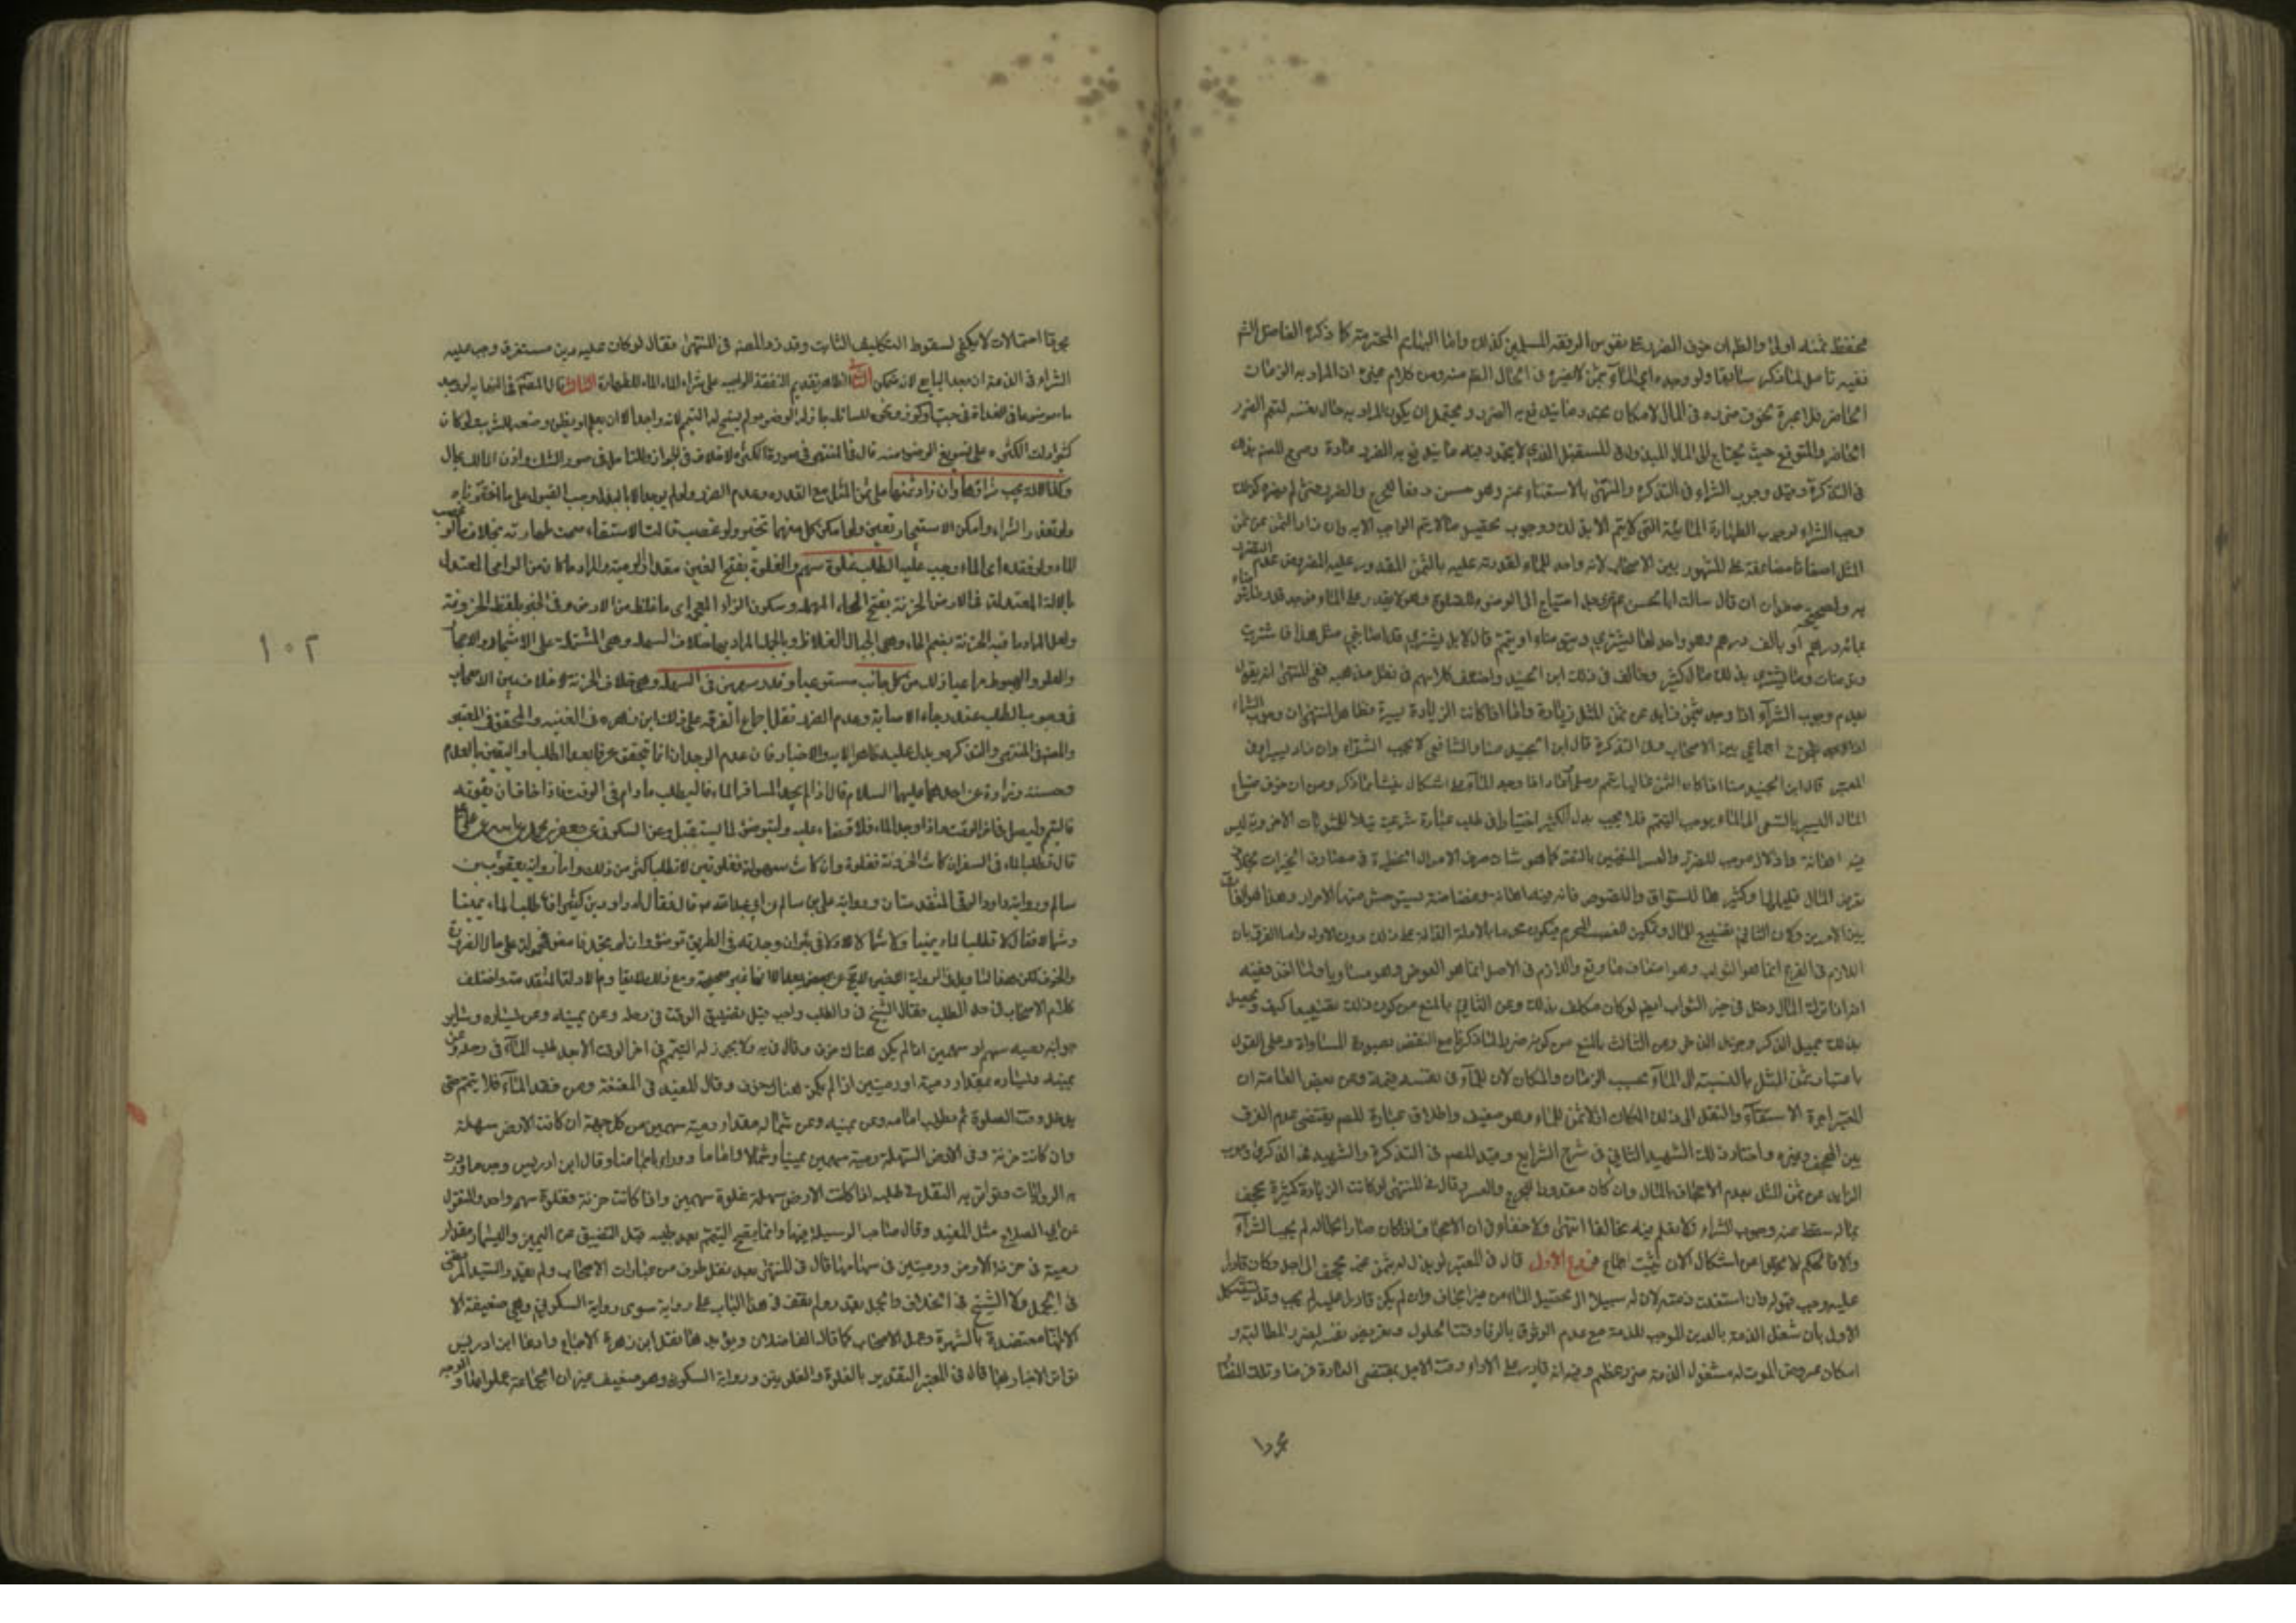 فحفظ بمثله اولى والظاهر ان خوف الضرر على نفوس الرفقة المسلمين كذلك واما البهائم المحترمة كما ذكره الفاضل الشم
ففيه تامل لما نذكر سابقا ولو وجده اي الماء بثمن لا يضره في الحال الظم منه ومن كلام غيره ان المراد به الزمان
الحاضر فلا عبرة بخوف ضرره في المال لامكان تجدد ما يندفع به الضرر ويحتمل ان يكون المراد به حال نفسه لتعم الضرر
الحاضر والمتوقع حيث يحتاج الى المال المبذول في المستقبل الذي لا يتجدد فيه ما يندفع به الضرر عادة وصرح المصنف بذلك
في التذكرة وقيل وجوب الشراء في التذكرة والمنتهى بالاستغناء عنه وهو حسن دفعا للحرج والضرر فمتى لم يضره كذلك
وجب الشراء لوجوب الطهارة المائية التي لا يتم الا بذلك ووجوب تحصيل ما لا يتم الواجب الا به وان زاد الثمن عن ثمن
المثل اضعافا مضاعفة على المشهور بين الاصحاب لانه واجد للماء لقدرته عليه بالثمن المقدور عليه المفروض عدم التضرر
به ولصحيحة صفوان قال سالت ابا الحسن عن رجل احتاج الى الوضوء للصلوة وهو لا يقدر على الماء فوجد قدر ما يتوضأ
بمائة درهم او بالف درهم وهو واجد لها يشتري ويتوضأ او يتيمم قال لا بل يشتري قد اصابني مثل هذا فاشتريت
وتوضأت وما يشتري بذلك مال كثير وخالف في ذلك ابن الجنيد واختلف كلامهم في نقل مذهبه ففي المنتهى انه يقول
بعدم وجوب الشراء اذا وجد بثمن زايد عن ثمن المثل زيادة واما اذا كانت الزيادة يسيرة فظاهر المنتهى ان وجوب الشراء
اجماعي بين الاصحاب وفي التذكرة قال ابن الجنيد منا والشافعي لا يجب الشراء وان زاد يسيرا وفي
المعتبر قال ابن الجنيد منا اذا كان الثمن غاليا يتيمم وصلى واعاد اذا وجد الماء على اشكال ينشأ مما ذكر ومن ان خوف ضياع
المال اليسير بالسعي الى الماء يوجب التيمم فلا يجب بذل الكثير اختيارا في طلب عبارة شرعية نيلا للمثوبات الاخروية ليس
فيه اهانة واذلال موجب للضرر والعسر المنفيين بالنص كما هو شان صرف الاموال الخطيرة في مصارف الخيرات بخلاف
تعرض المال قليلها وكثيرها للسراق واللصوص فانه فيه اهانة وغضاضة يستوحش منها الاحرار وهذا هو الفارق
بين الامرين ولان الثاني تضييع المال وتمكين الغصب المحرم فيكون محرما بالادلة الدالة على ذلك دون الاول واما الفرق بان
اللازم في الفرع انما هو الثواب وهو اضعاف ما وقع واللازم في الاصل انما هو العوض وهو مساو لما اخذ ففيه
ان اذا ترك المال دخل في حيز الثواب ايضا لو كان مكلف بذلك وعن الثاني بالمنع من كون ذلك تضييعا كيف وتحصيل
بذلك جميل الذكر وجزيل الذخر وعن الثالث بالمنع من كونه ضررا لما ذكرنا مع النقض بصورة المساواة وعلى القول
باعتبار ثمن المثل بالنسبة الى الماء بحسب الزمان والمكان لان للماء في نفسه قيمة وعن بعض العامة ان
المعتبر اجرة الاستقاء والنقل الى ذلك المكان اذ لا ثمن للماء وهو ضعيف واطلاق عبارة المصنف يقتضي عدم الفرق
بين المجحف وغيره واختار ذلك الشهيد الثاني في شرح الشرايع وقيد المصنف في التذكرة والشهيد في الذكرى وجوب
الزايد عن ثمن المثل بعدم الاجحاف بالمال وان كان مقدورا للحرج والعسر وقال في المنتهى لو كانت الزيادة كثيرة تجحف
بماله سقط عنه وجوب الشراء ولا نعلم فيه مخالفا انتهى ولا خفاء في ان الاجحاف اذا كان ضارا بحاله لم يجب الشراء
والا فالحكم لا يخلو عن اشكال الا ان يثبت اجماع فروع الاول قال في المعتبر لو بذل له بثمن غير مجحف الى اجل وكان قادرا
عليه وجب قبوله وان استغلت ذمته لان له سبيلا الى تحصيل الماء من غير اجحاف وان لم يكن قادرا عليه لم يجب وقد يستشكل
الاول بان شغل الذمة بالدين الموجب للمذمة مع عدم الوثوق بالوفاء وقت الحلول وتعريض نفسه لضرر المطالبة و
امكان عروض الموت له مشغول الذمة ضرر عظيم وفيه انه قادر على الاداء وقت الاجل بمقتضى العادة فرضا وتلك المضار
بمجرد احتمالات لا يكفي لسقوط التكليف الثابت وقد زاد المصنف في المنتهى فقال لو كان عليه دين مستغرق وجب عليه
الشراء في الذمة ان وجد البايع لانه متمكن الثاني الظاهر تقديم النفقة الواجبة على شراء الماء للطهارة الثالث قال المصنف في النهاية لو وجد
ماء موضوعا في الفلاة في حب او كوز ونحوه للسابلة جاز له الوضوء ولم يسغ له التيمم لانه واجد الا ان يعلم او يظن وضعه للشرب ولو كان
كثيرا دلت الكثرة على تسويغ الوضوء منه قال في المنتهى في صورة الكثرة لا خلاف في الجواز وللتامل في صور الشك واذن المالك مجال
وكذا الآلة يجب شراؤها وان زاد ثمنها على ثمن المثل مع القدرة وعدم الضرر ولو لم يوجد الا بالبذل وجب القبول على ما اخترناه
ولو تعذر الشراء وامكن الاستيجار تعين ولو امكن كل منهما تخير ولو غصب آلة الاستقاء صحت طهارته بخلاف ما لو غصب
الماء ولو فقده اي الماء وجب عليه الطلب غلوة سهم والغلوة بفتح الغين مقدار الرمية والمراد ما كان من الرامي المعتدل
بالآلة المعتدلة في الارض الحزنة بفتح الحاء المهملة وسكون الزاء المعجمة اي ما غلظ من الارض وفي الخبر بلفظ الحزونة
ولعل المراد ما فيه الحزنة بضم الحاء وهي الجبال الغلاظ وبالجملة المراد بها خلاف السهلة وهي المشتملة على الاشجار والاحجار
والعلو والهبوط مراعيا ذلك من كل جانب مستوعبا وقدر سهمين في السهلة وهي خلاف الحزنة لا خلاف بين الاصحاب
في وجوب الطلب عند رجاء الاصابة وعدم الضرر نقل اجماع الفرقة على ذلك ابن زهره في الغنيه والمحقق في المعتبر
والمصنف في المنتهى والتذكره ويدل عليه ظاهر الاية والاخبار فان عدم الوجدان انما يتحقق عرفا بعد الطلب او اليقين بالعدم
وحسنة زرارة عن احدهما عليهما السلام قال اذا لم يجد المسافر الماء فليطلب ما دام في الوقت فاذا خاف ان يفوته
فليتيمم وليصل في اخر الوقت فاذا وجد الماء فلا قضاء عليه وليتوضئ لما يستقبل وعن السكوني عن جعفر بن محمد عن ابيه عن علي ع
قال يطلب الماء في السفر ان كانت الحزونة فغلوة وان كانت سهولة فغلوتين لا تطلب اكثر من ذلك واما رواية يعقوب بن
سالم ورواية داود الرقي المتقدمتان ورواية علي بن سالم عن ابي عبدالله ع قال فقال له داود بن كثير افاطلب الماء يمينا
وشمالا فقال لا تطلب الماء يمينا ولا شمالا ولا في بئر ان وجدته في الطريق فتوضئ وان لم تجد فامض فمحمولة على حال الضرورة
والخوف
كلام الاصحاب في حد الطلب فقال الشيخ في ط والطلب واجب قبل تضيق الوقت في رحله وعن يمينه وعن يساره وساير
جوانبه رمية سهم او سهمين اذا لم يكن هناك خوف وقال في ية ولا يجوز له التيمم في اخر الوقت الا بعد طلب الماء في رحله وعن
يمينه ويساره بمقدار رمية او رميتين اذا لم يكن هناك خوف وقال المفيد في المقنعة ومن فقد الماء فلا يتيمم حتى
يدخل وقت الصلوة ثم يطلب امامه وعن يمينه وعن شماله مقدار رمية سهمين من كل جهة ان كانت الارض سهلة
وان كانت حزنة وفي الارض السهلة رمية سهمين يمينا وشمالا واماما ووراء وقال ابن ادريس وحد ما وردت
به الروايات وتواتر به النقل في طلبه اذا كانت الارض سهلة غلوة سهمين واذا كانت حزنة فغلوة سهم واحد والمنقول
عن ابي الصلاح مثل المفيد وقال صاحب الوسيلة فيها وانما يصح التيمم بعد طلبه قبل التضييق عن اليمين واليسار مقدار
رمية في حزنة الارض ورميتين في سهلها قال في المنتهى بعد نقل طرف من عبارات الاصحاب ولم يقدره السيد المرتضى
في الجمل ولا الشيخ في الخلاف والجمل بقدر ولم نقف في هذا الباب على رواية سوى رواية السكوني وهي ضعيفة الا
انها معتضدة بالشهرة وعمل الاصحاب كما قال الفاضلان ويؤيدها نقل ابن زهرة الاجماع وادعا ابن ادريس
تواتر الاخبار بها قال في المعتبر التقدير بالغلوة والغلوتين ورواية السكوني وهو ضعيف غير ان الجماعة عملوا بها والوجه
١٠٢